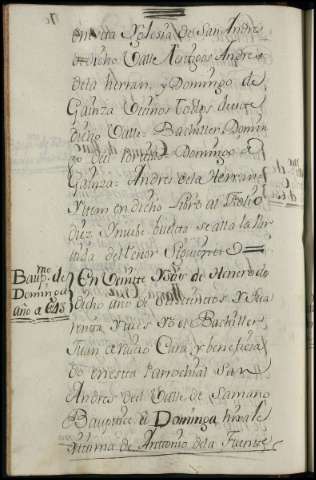 en esta Yglesia de San Andres
dicho Valle Testigos Andres
de la herran, y Domingo de
Gainza Vecinos todos de este
dicho Valle= Bachiller Domin
go del Portillo= Domingo de
Gainza= Andres de la Herran=
Yten en dicho Libro al folio
diez y nuebe buelta se alla la Par
tida del tenor Siguiente=
Baup.mo de
Dominga
año de 643
En Veinte y seis de Henero de
dicho año de seiscientos y
y tres yo el Bachiller
Juan Cura y beneficia
do en esta Parrochial San
Andres del Valle de Samano
Baupticé a Dominga hija le
xitima de Antonio de la Fuente